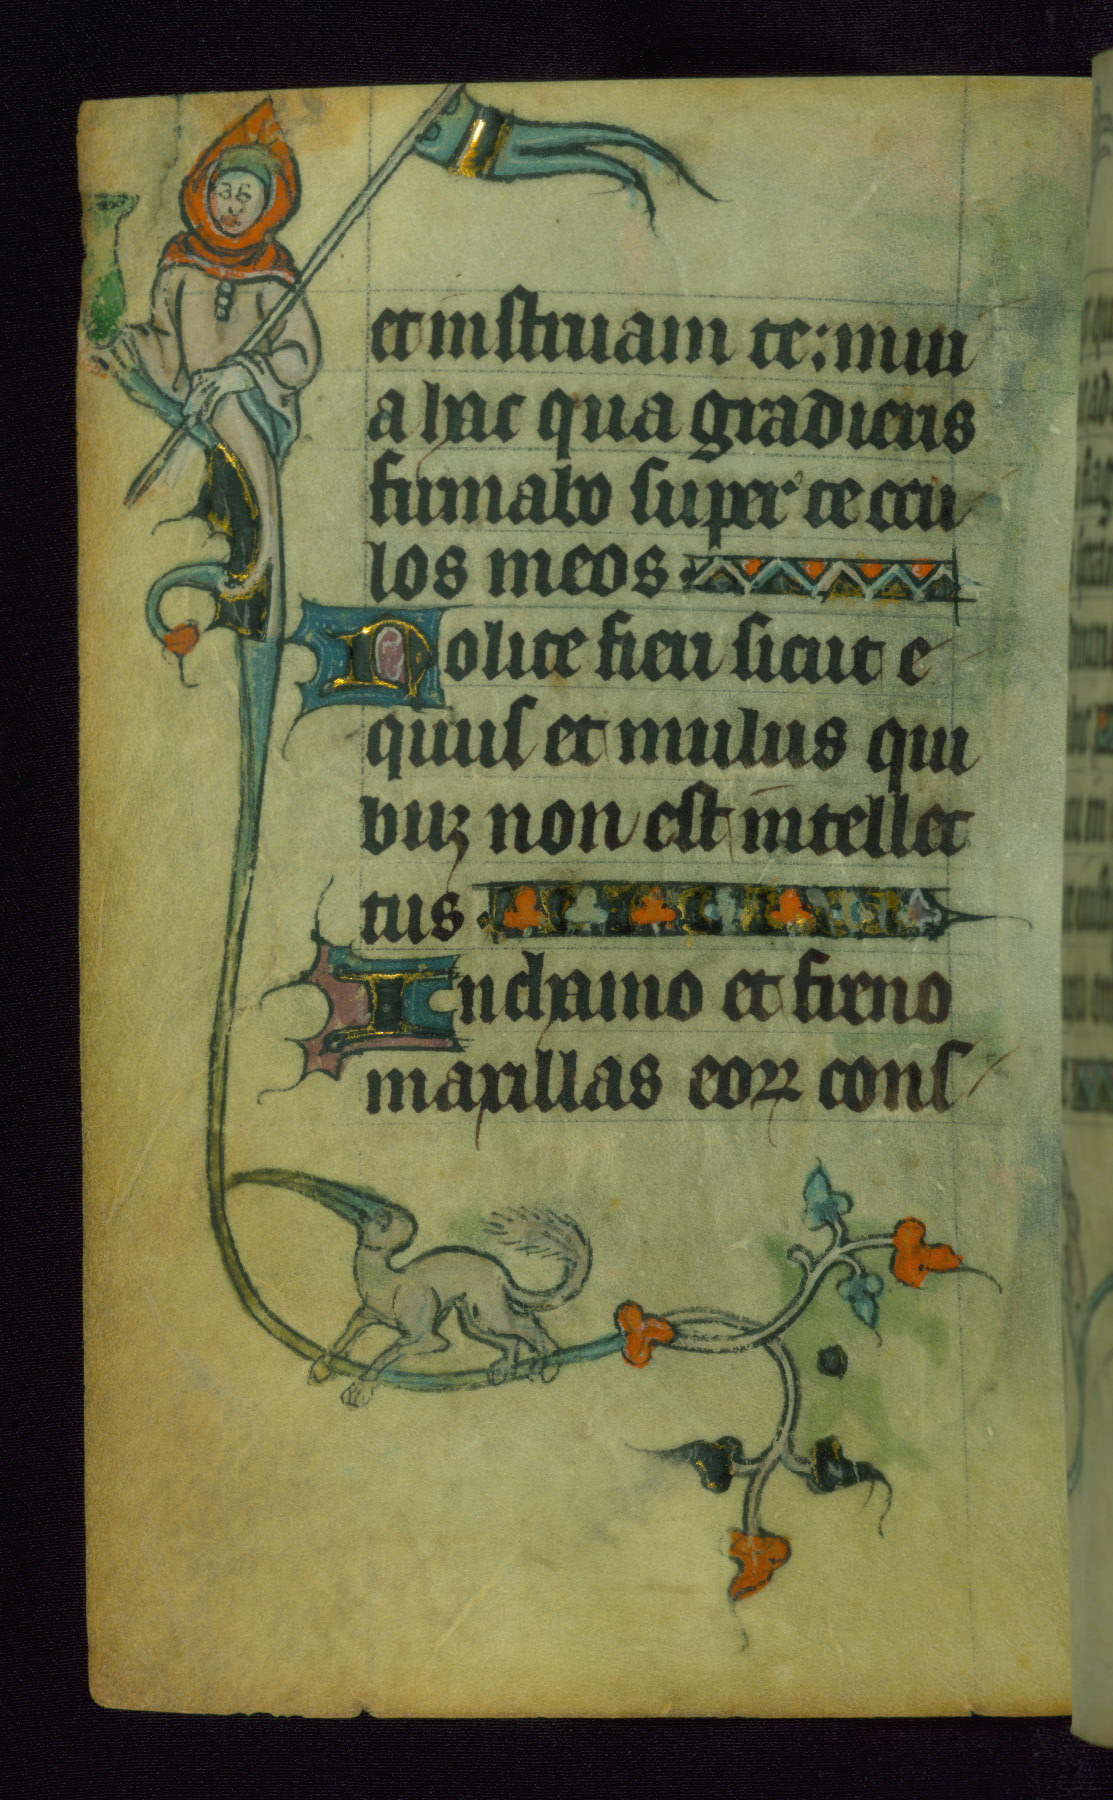 et instruam te: in ui
a hac qua gradieris
firmabo super te ocu
los meos
Nolite fieri sicut e
quus et mulus qui
buz non est intellec
tus
In chamo et freno
maxillas eoꝝ cons